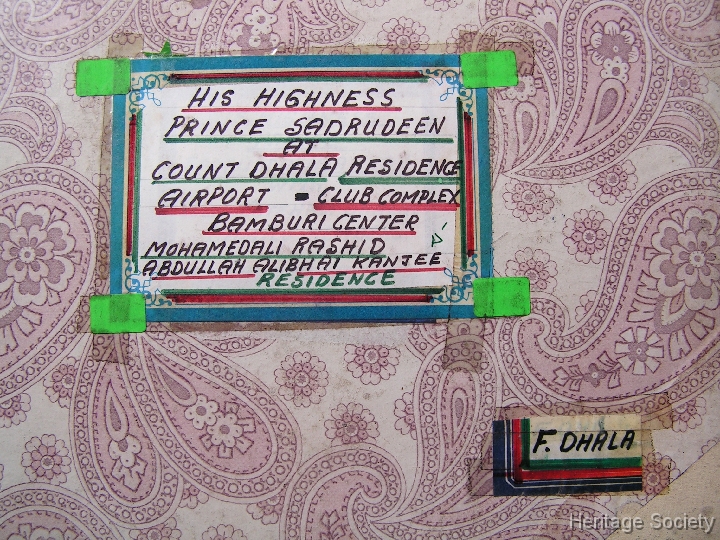 HIS HIGHNESS
PRINCE SADRUDEEN
AT
COUNT DHALA RESIDENCE
AIRPORT - CLUB COMPLEX
BAMBURI CENTER
MOHAMEDALI RASHID
ABDULLAH ALIBHAI KANJEE
RESIDENCE
F. DHALA
Heritage Society